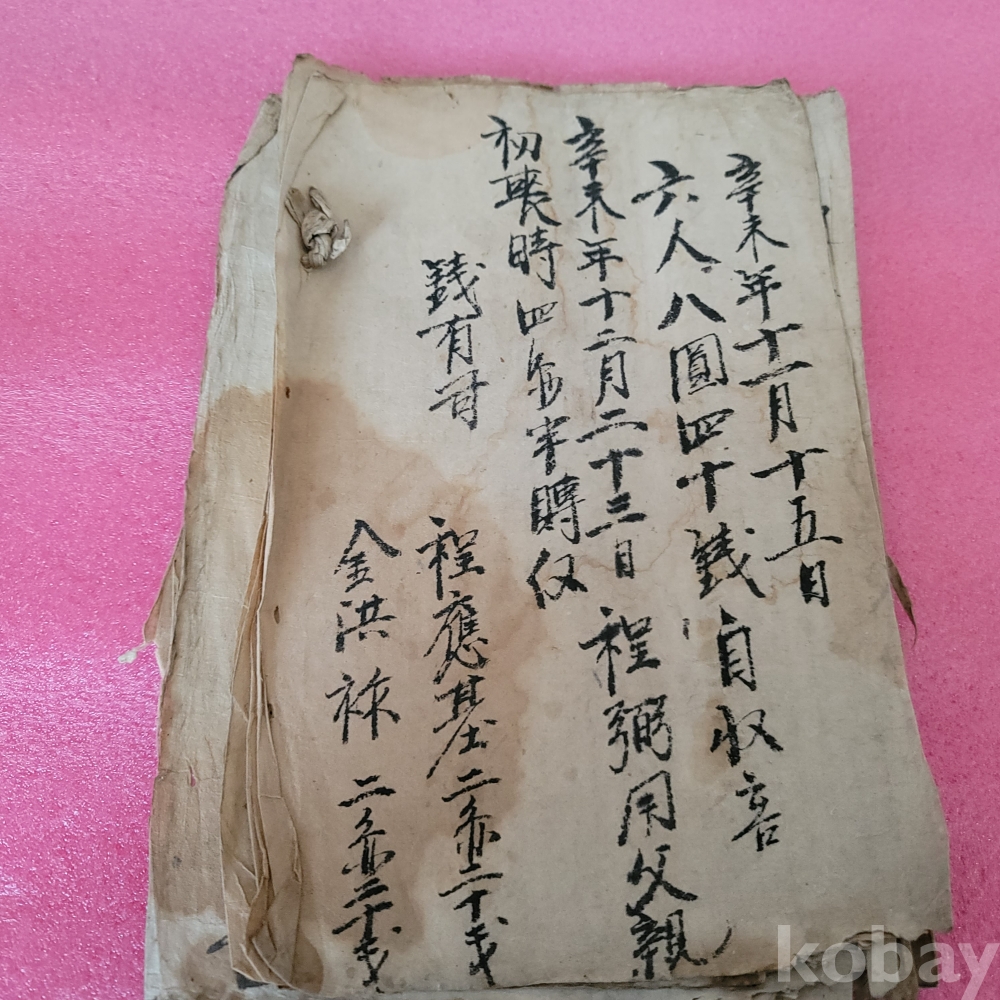 辛未年十一月十五日
六人八圓四十錢自收喜
辛未年十二月二十三日 程弼用父親
初喪時四斧半時仅
錢有出
程應基 二 二十戋
金洪祚 二 二十戋
kobay